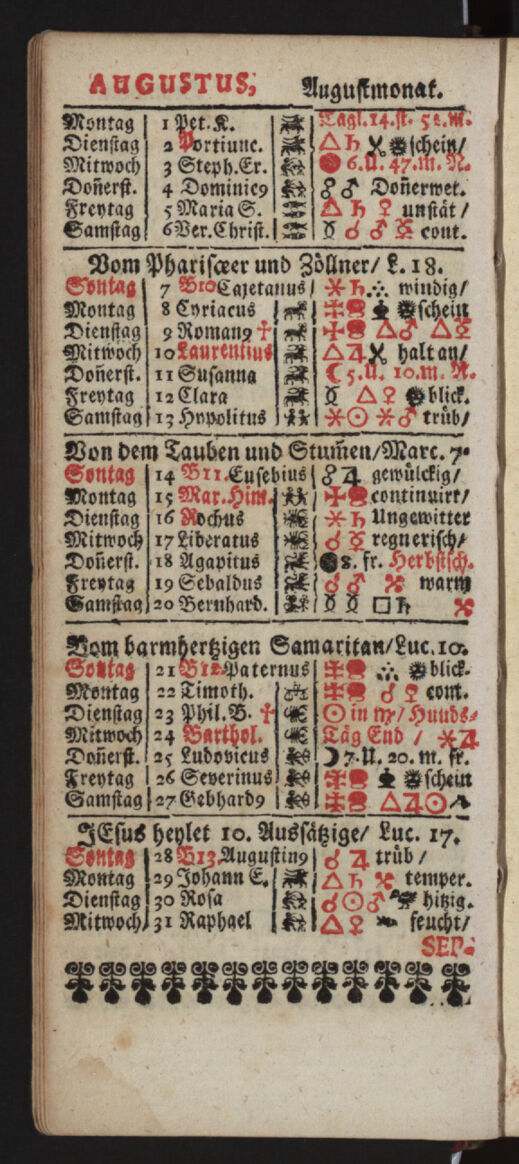 AUGUSTUS, Augustmonat.
Montag 1 Pet. K. Tagl. 14. st. 52. m.
Dienstag 2 Portiunc. △ ♄ schein/
Mitwoch 3 Steph. Er. 6. U. 47. m. N.
Doñerst. 4 Dominic9 ☍ ♂ Doñerwet.
Freytag 5 Maria S. △ ♄ ♀ unstät /
Samstag 6 Ver. Christ. ☿ ☌ ♂ cont.
Vom Pharisæer und Zöllner/ L. 18.
Sontag 7 B10 Cajetanus ⚹ ♄ ∴ windig/
Montag 8 Cyriacus schein
Dienstag 9 Roman9 † △♂ △♀
Mitwoch 10 Laurentius △♃ halt an/
Doñerst. 11 Susanna ☾ 5. U. 10. m. N.
Freytag 12 Clara ☿ △ ♀ blick.
Samstag 13 Hypolitus ⚹☉ ⚹♂ trüb/
Von dem Tauben und Stum̃en/Marc. 7.
Sontag 14 B11. Eusebius ☍ ♃ gewülckig/
Montag 15 Mar. Him. continuirt/
Dienstag 16 Rochus ⚹ ♄ Ungewitter
Mitwoch 17 Liberatus ☌ ☿ regnerisch/
Doñerst. 18 Agapitus 8. fr. Herbstsch.
Freytag 19 Sebaldus ☌ ♂ warm
Samstag 20 Bernhard. □ ♄
Vom barmhertzigen Samaritan/Luc. 10.
Sontag 21 B12. Paternus ∴ blick.
Montag 22 Timoth. ☌ ♀ cont.
Dienstag 23 Phil. B. † ☉ in ♍/ Hunds-
Mitwoch 24 Barthol. Täg End / ⚹♃
Doñerst. 25 Ludovicus ☽ 7. U. 20. m. fr.
Freytag 26 Severinus schein
Samstag 27 Gebhard9 △♃☉
JEsus heylet 10. Aussätzige/ Luc. 17.
Sontag 28 B13. Augustin9 ☌ ♃ trüb /
Montag 29 Johann E. △ ♄ temper.
Dienstag 30 Rosa ☌☉♂ hitzig.
Mitwoch 31 Raphael △ ♀ feucht/
SEP-